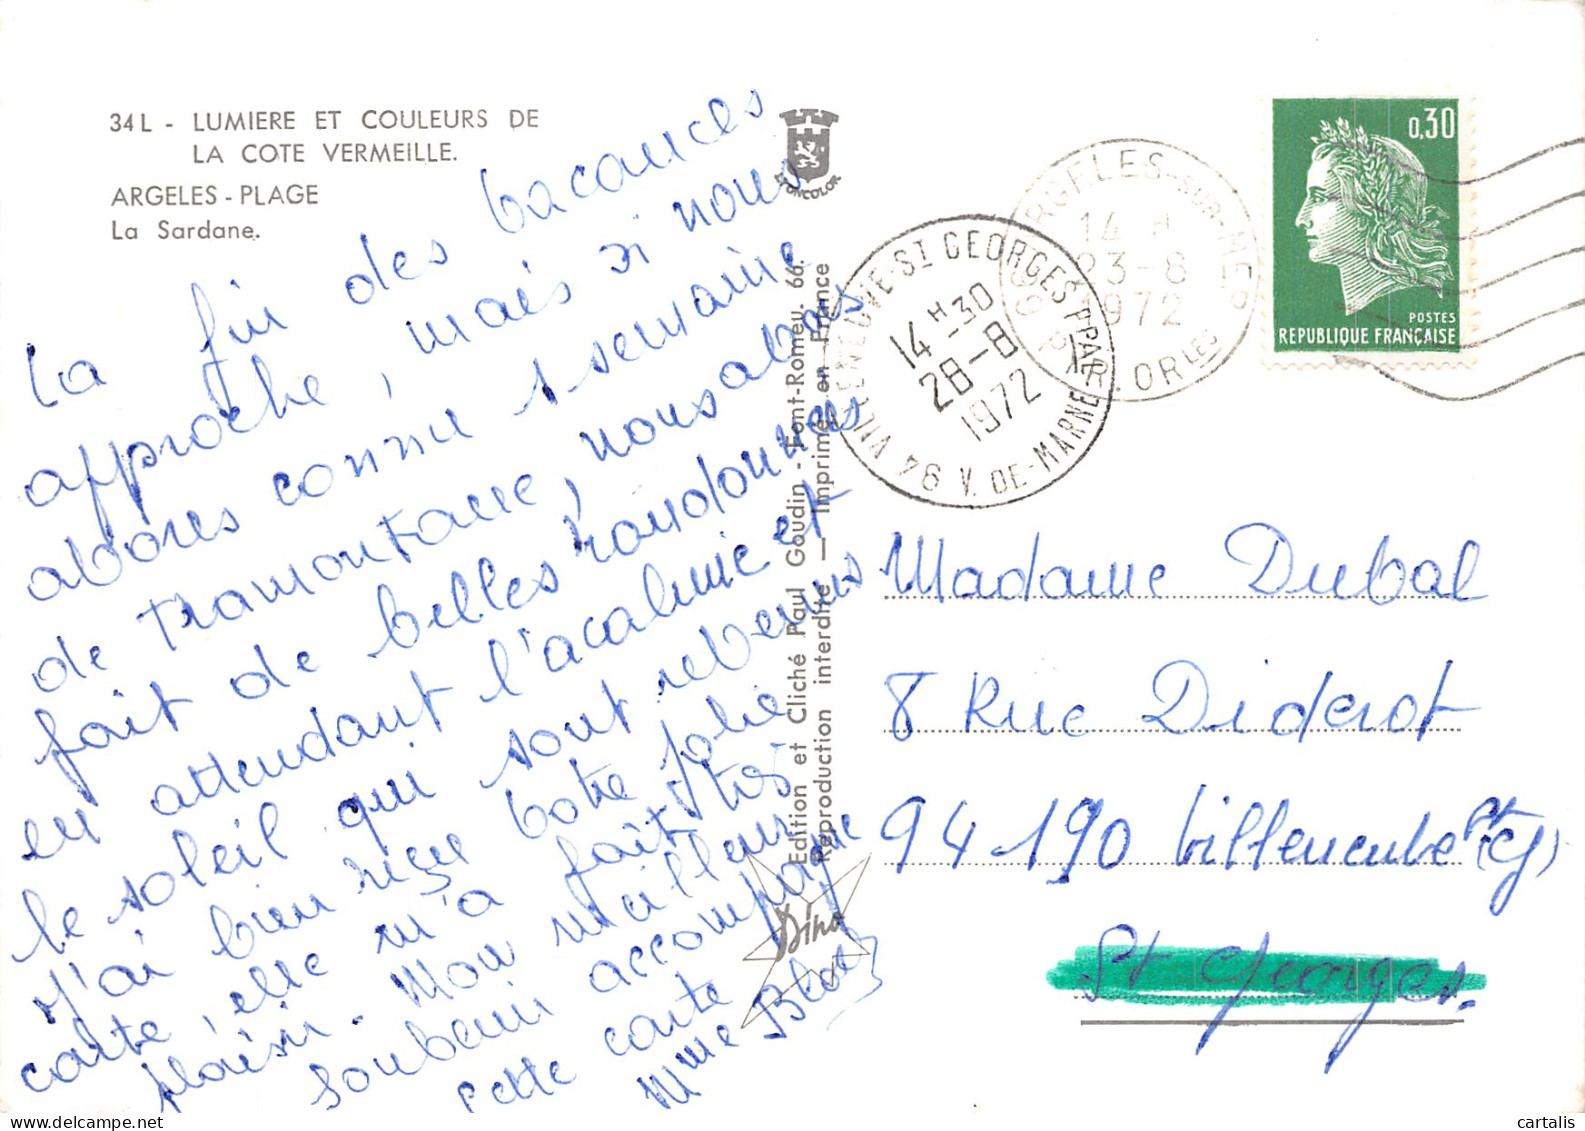 34L - LUMIERE ET COULEURS DE
LA COTE VERMEILLE.
ARGELES - PLAGE
La Sardane.
La fin des vacances
approche, mais si nous
avons connu 1 semaine
de tramontane, nous avons
fait de belles randonnées
en attendant l'acalmie et
le soleil qui sont revenus
J'ai bien reçu votre jolie
carte, elle m'a fait très
plaisir. Mon meilleur
souvenir accompagne
cette carte
Mme
LYONCOLOR
Edition et Cliché Paul Goudin - Font-Romeu. 66.
Reproduction interdite — Imprimé en France
Dino
VILLENEUVE-ST GEORGES PPAL
14H-30
28-8
1972
94 V. DE-MARNE
ARGELES-SUR-MER
14 H
23-8
1972
66 PYR. ORLES
0,30
POSTES
REPUBLIQUE FRANÇAISE
Madame Duval
8 Rue Diderot
94-190 Villeneuve St (Cg)
St Georges.
cartalis